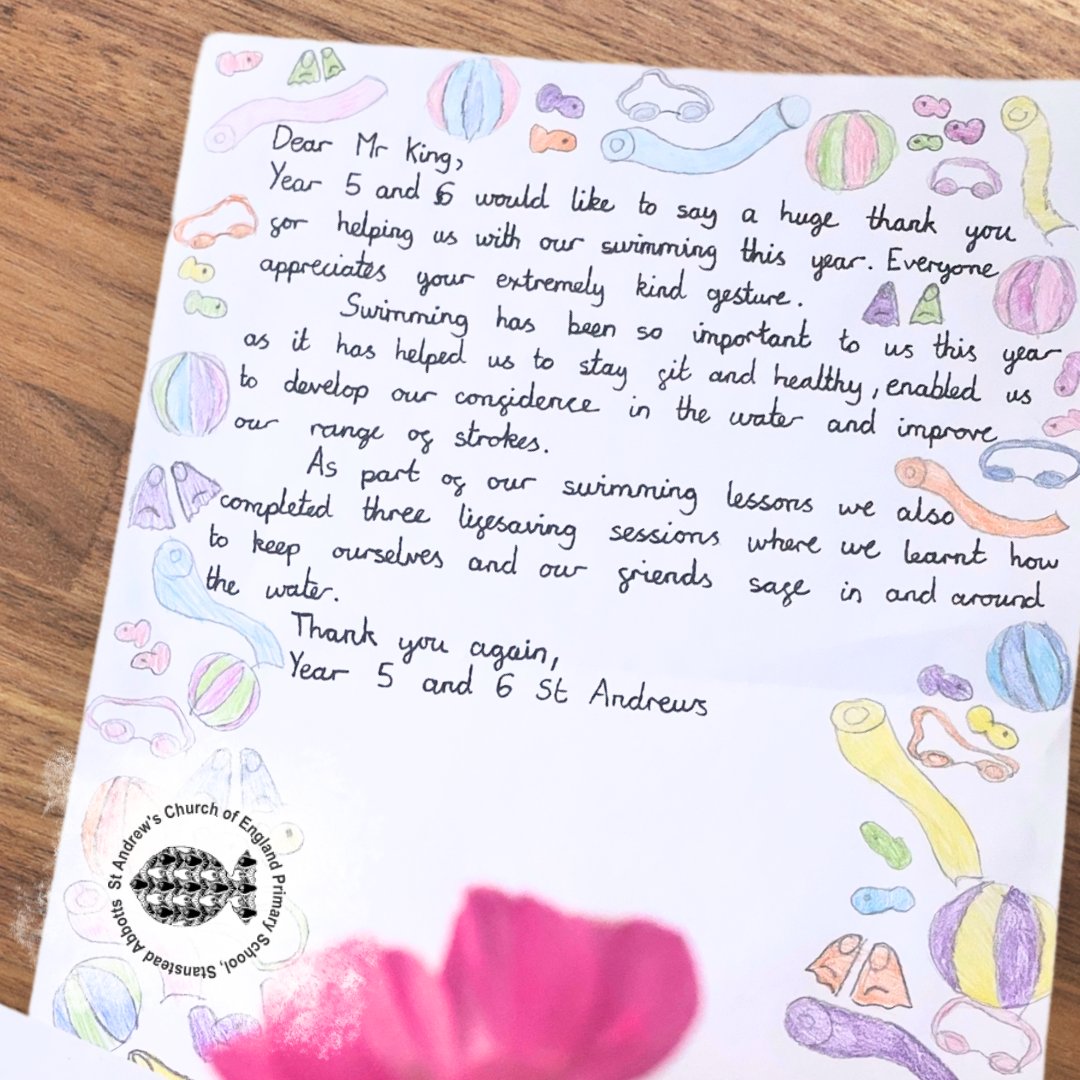 Dear Mr King,
Year 5 and 6 would like to say a huge thank you
for helping us with our swimming this year. Everyone
appreciates your extremely kind gesture.
Swimming has been so important to us this year
as it has helped us to stay fit and healthy, enabled us
to develop our confidence in the water and improve
our range of strokes.
As part of our swimming lessons we also
completed three lifesaving sessions where we learnt how
to keep ourselves and our friends safe in and around
the water.
Thank you again,
Year 5 and 6 St Andrews
St Andrew's Church of England Primary School, Stanstead Abbotts